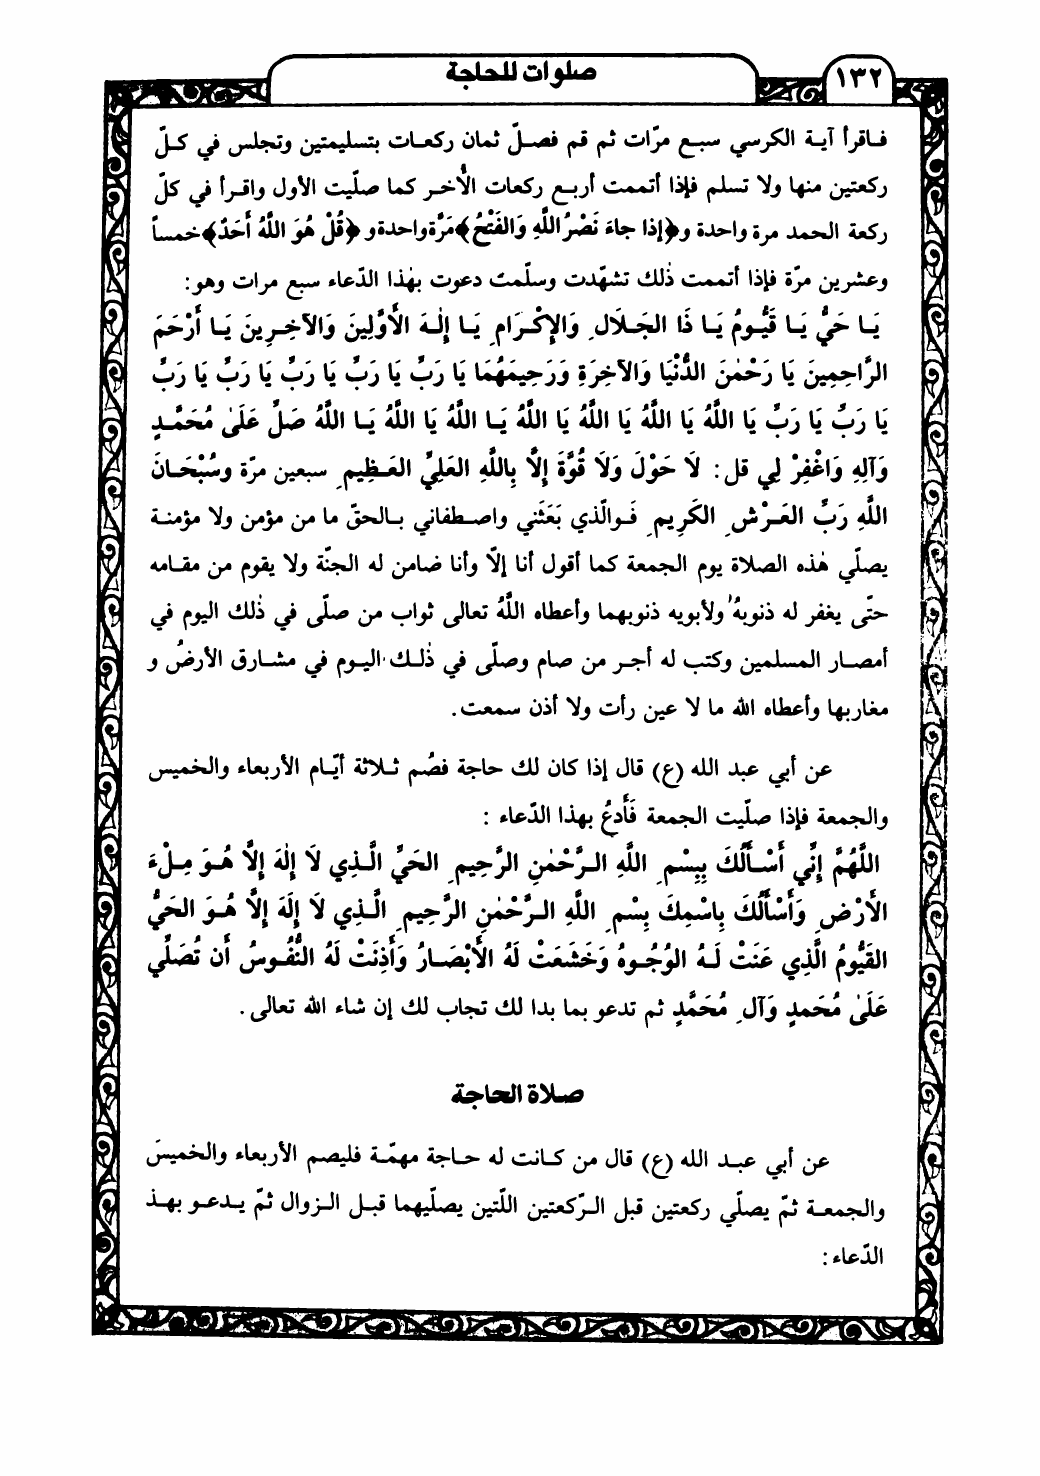 ١٣٢
صلوات للحاجة
فاقرأ آية الكرسي سبع مرّات ثم قم فصلّ ثمان ركعات بتسليمتين وتجلس في كلّ
ركعتين منها ولا تسلم فإذا أتممت أربع ركعات الأُخر كما صلّيت الأول واقرأ في كلّ
ركعة الحمد مرة واحدة و﴿إذا جاءَ نَصْرُ اللَّهِ وَالفَتْحُ﴾ مَرَّة واحدة و ﴿قُلْ هُوَ اللَّهُ أَحَدٌ﴾ خمساً
وعشرين مرّة فإذا أتممت ذٰلك تشهّدت وسلّمت دعوت بهٰذا الدّعاء سبع مرات وهو:
يَا حَيُّ يَا قَيُّومُ يَا ذَا الجَلَالِ وَالإِكْرَامِ يَا إِلٰهَ الأَوَّلِينَ وَالآخِرِينَ يَا أَرْحَمَ
الرَّاحِمِينَ يَا رَحْمٰنَ الدُّنْيَا وَالآخِرَةِ وَرَحِيمَهُمَا يَا رَبِّ يَا رَبِّ يَا رَبِّ يَا رَبِّ يَا رَبِّ
يَا رَبِّ يَا رَبِّ يَا اللَّهُ يَا اللَّهُ يَا اللَّهُ يَا اللَّهُ يَا اللَّهُ يَا اللَّهُ يَا اللَّهُ صَلِّ عَلَىٰ مُحَمَّدٍ
وَآلِهِ وَاغْفِرْ لِي قل: لَا حَوْلَ وَلَا قُوَّةَ إِلَّا بِاللَّهِ العَلِيِّ العَظِيمِ سبعين مرّة وسُبْحَانَ
اللَّهِ رَبِّ العَرْشِ الكَرِيمِ فوالّذي بَعَثَني واصطفاني بالحقّ ما من مؤمن ولا مؤمنة
يصلّي هٰذه الصلاة يوم الجمعة كما أقول أنا إلّا وأنا ضامن له الجنّة ولا يقوم من مقامه
حتّى يغفر له ذنوبهُ ولأبويه ذنوبهما وأعطاه اللَّهُ تعالى ثواب من صلّى في ذٰلك اليوم في
أمصار المسلمين وكتب له أجر من صام وصلّى في ذٰلك اليوم في مشارق الأرض و
مغاربها وأعطاه الله ما لا عين رأت ولا أذن سمعت.
عن أبي عبد الله (ع) قال إذا كان لك حاجة فصُم ثلاثة أيّام الأربعاء والخميس
والجمعة فإذا صلّيت الجمعة فَأَدعُ بهذا الدّعاء :
اللَّهُمَّ إِنِّي أَسْأَلُكَ بِبِسْمِ اللَّهِ الرَّحْمٰنِ الرَّحِيمِ الحَيِّ الَّذِي لَا إِلٰهَ إِلَّا هُوَ مِلْءَ
الأَرْضِ وَأَسْأَلُكَ بِاسْمِكَ بِسْمِ اللَّهِ الرَّحْمٰنِ الرَّحِيمِ الَّذِي لَا إِلَهَ إِلَّا هُوَ الحَيُّ
القَيُّومُ الَّذِي عَنَتْ لَهُ الوُجُوهُ وَخَشَعَتْ لَهُ الأَبْصَارُ وَأَذِنَتْ لَهُ النُّفُوسُ أَن تُصَلِّي
عَلَىٰ مُحَمدٍ وَآلِ مُحَمَّدٍ ثم تدعو بما بدا لك تجاب لك إن شاء الله تعالى.
صلاة الحاجة
عن أبي عبد الله (ع) قال من كانت له حاجة مهمّة فليصم الأربعاء والخميسَ
والجمعة ثمّ يصلّي ركعتين قبل الرّكعتين اللّتين يصلّيهما قبل الزوال ثمّ يدعو بهذ
الدّعاء: